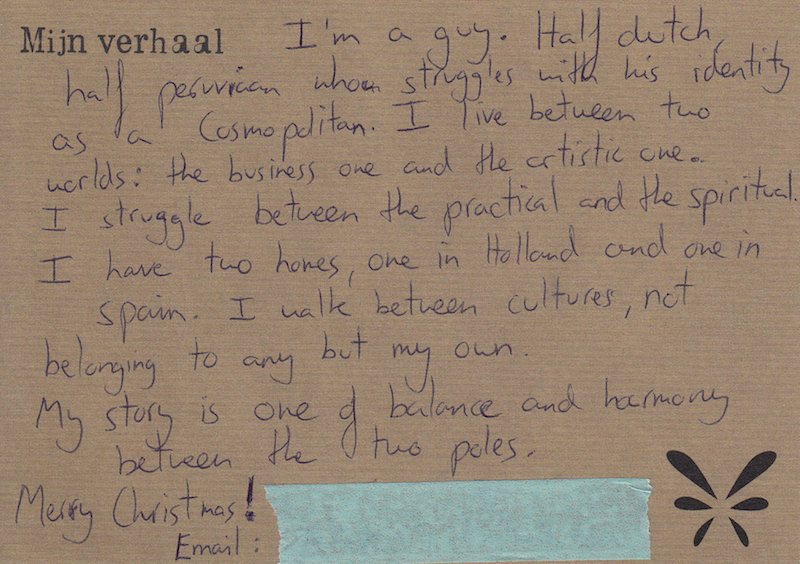 Mijn verhaal I'm a guy. Half dutch,
half peruvian whom struggles with his identity
as a Cosmopolitan. I live between two
worlds: the business one and the artistic one.
I struggle between the practical and the spiritual.
I have two homes, one in Holland and one in
Spain. I walk between cultures, not
belonging to any but my own.
My story is one of balance and harmony
between the two poles.
Merry Christmas!
Email: